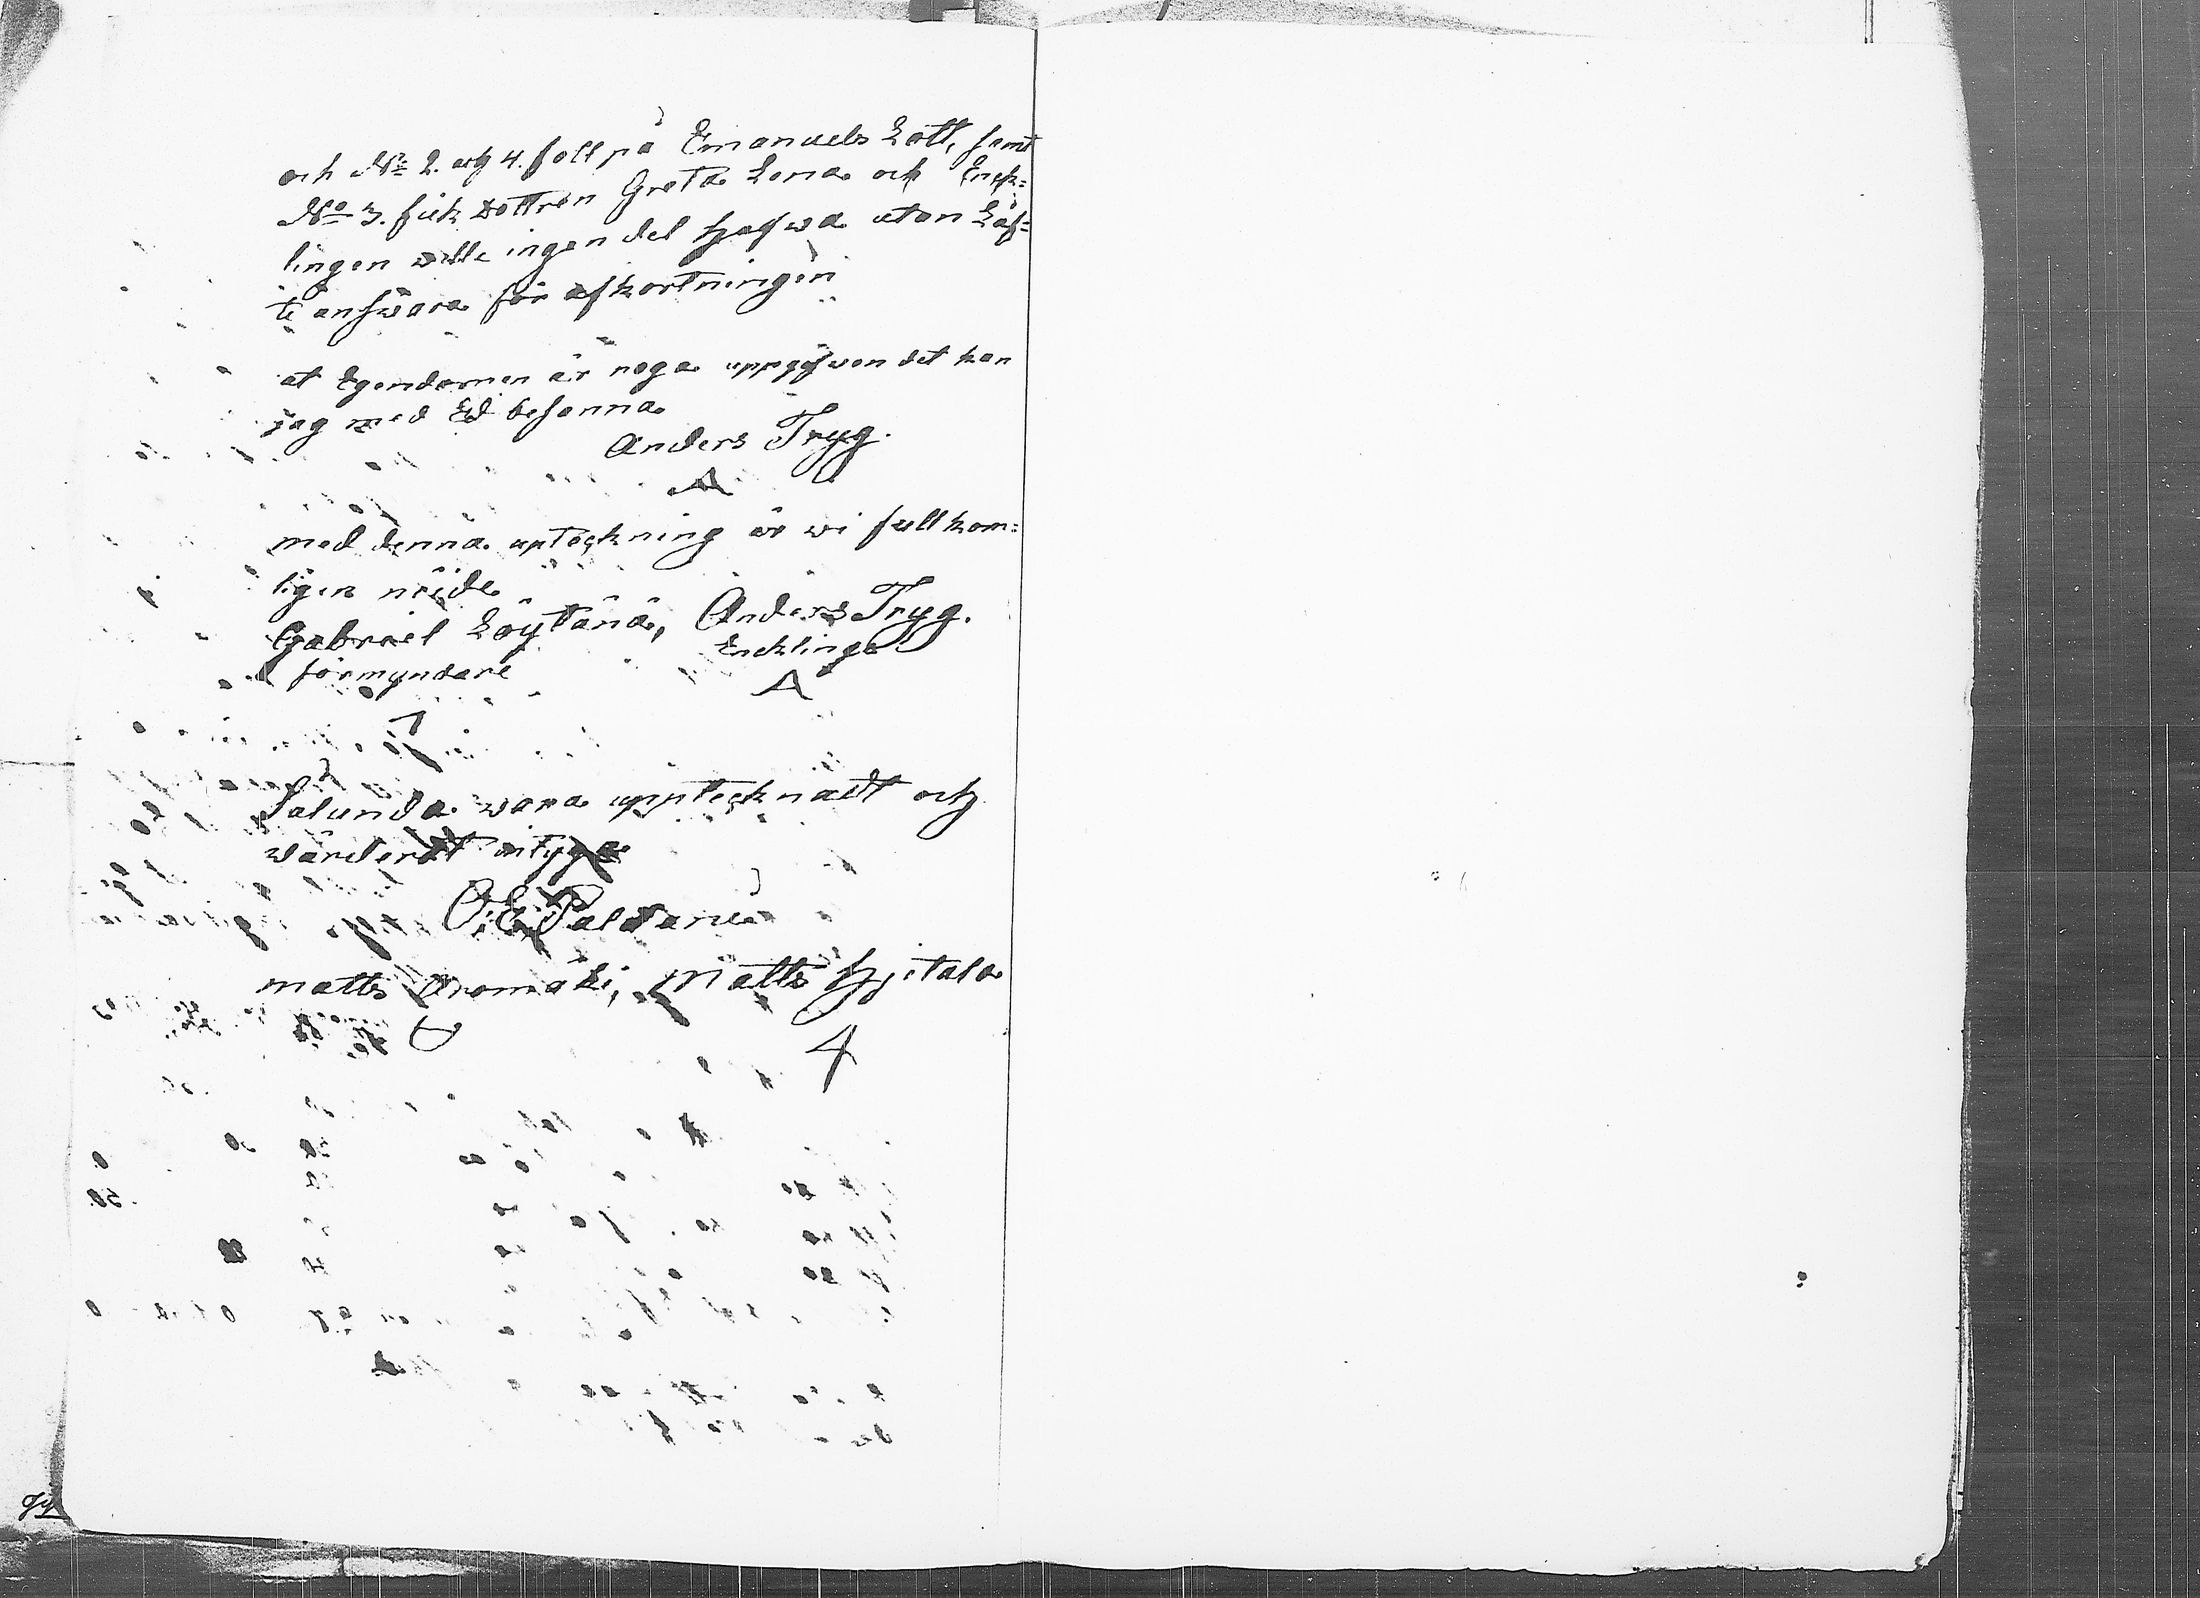 och N:o 2. och 4. föll på Emanuels Lott, samt
N:o 3. fick dottren Greta Lena och Enck=
lingen wille ingen del hafwa utan Läf=
te answara för afkortningen
at Egendomen är noga uppgifwen det kan
jag med Ed besanna
Anders Tryg.
A
med denna upteckning äre wi fullkom=
ligen nöjde
Gabriel Löytänä, Anders Tryg.
förmyndare Encklinge
Salunda wara upptecknadt och
wärderat intyga
O: E: Paldanius
matts Aromäki, Matts Hjitala